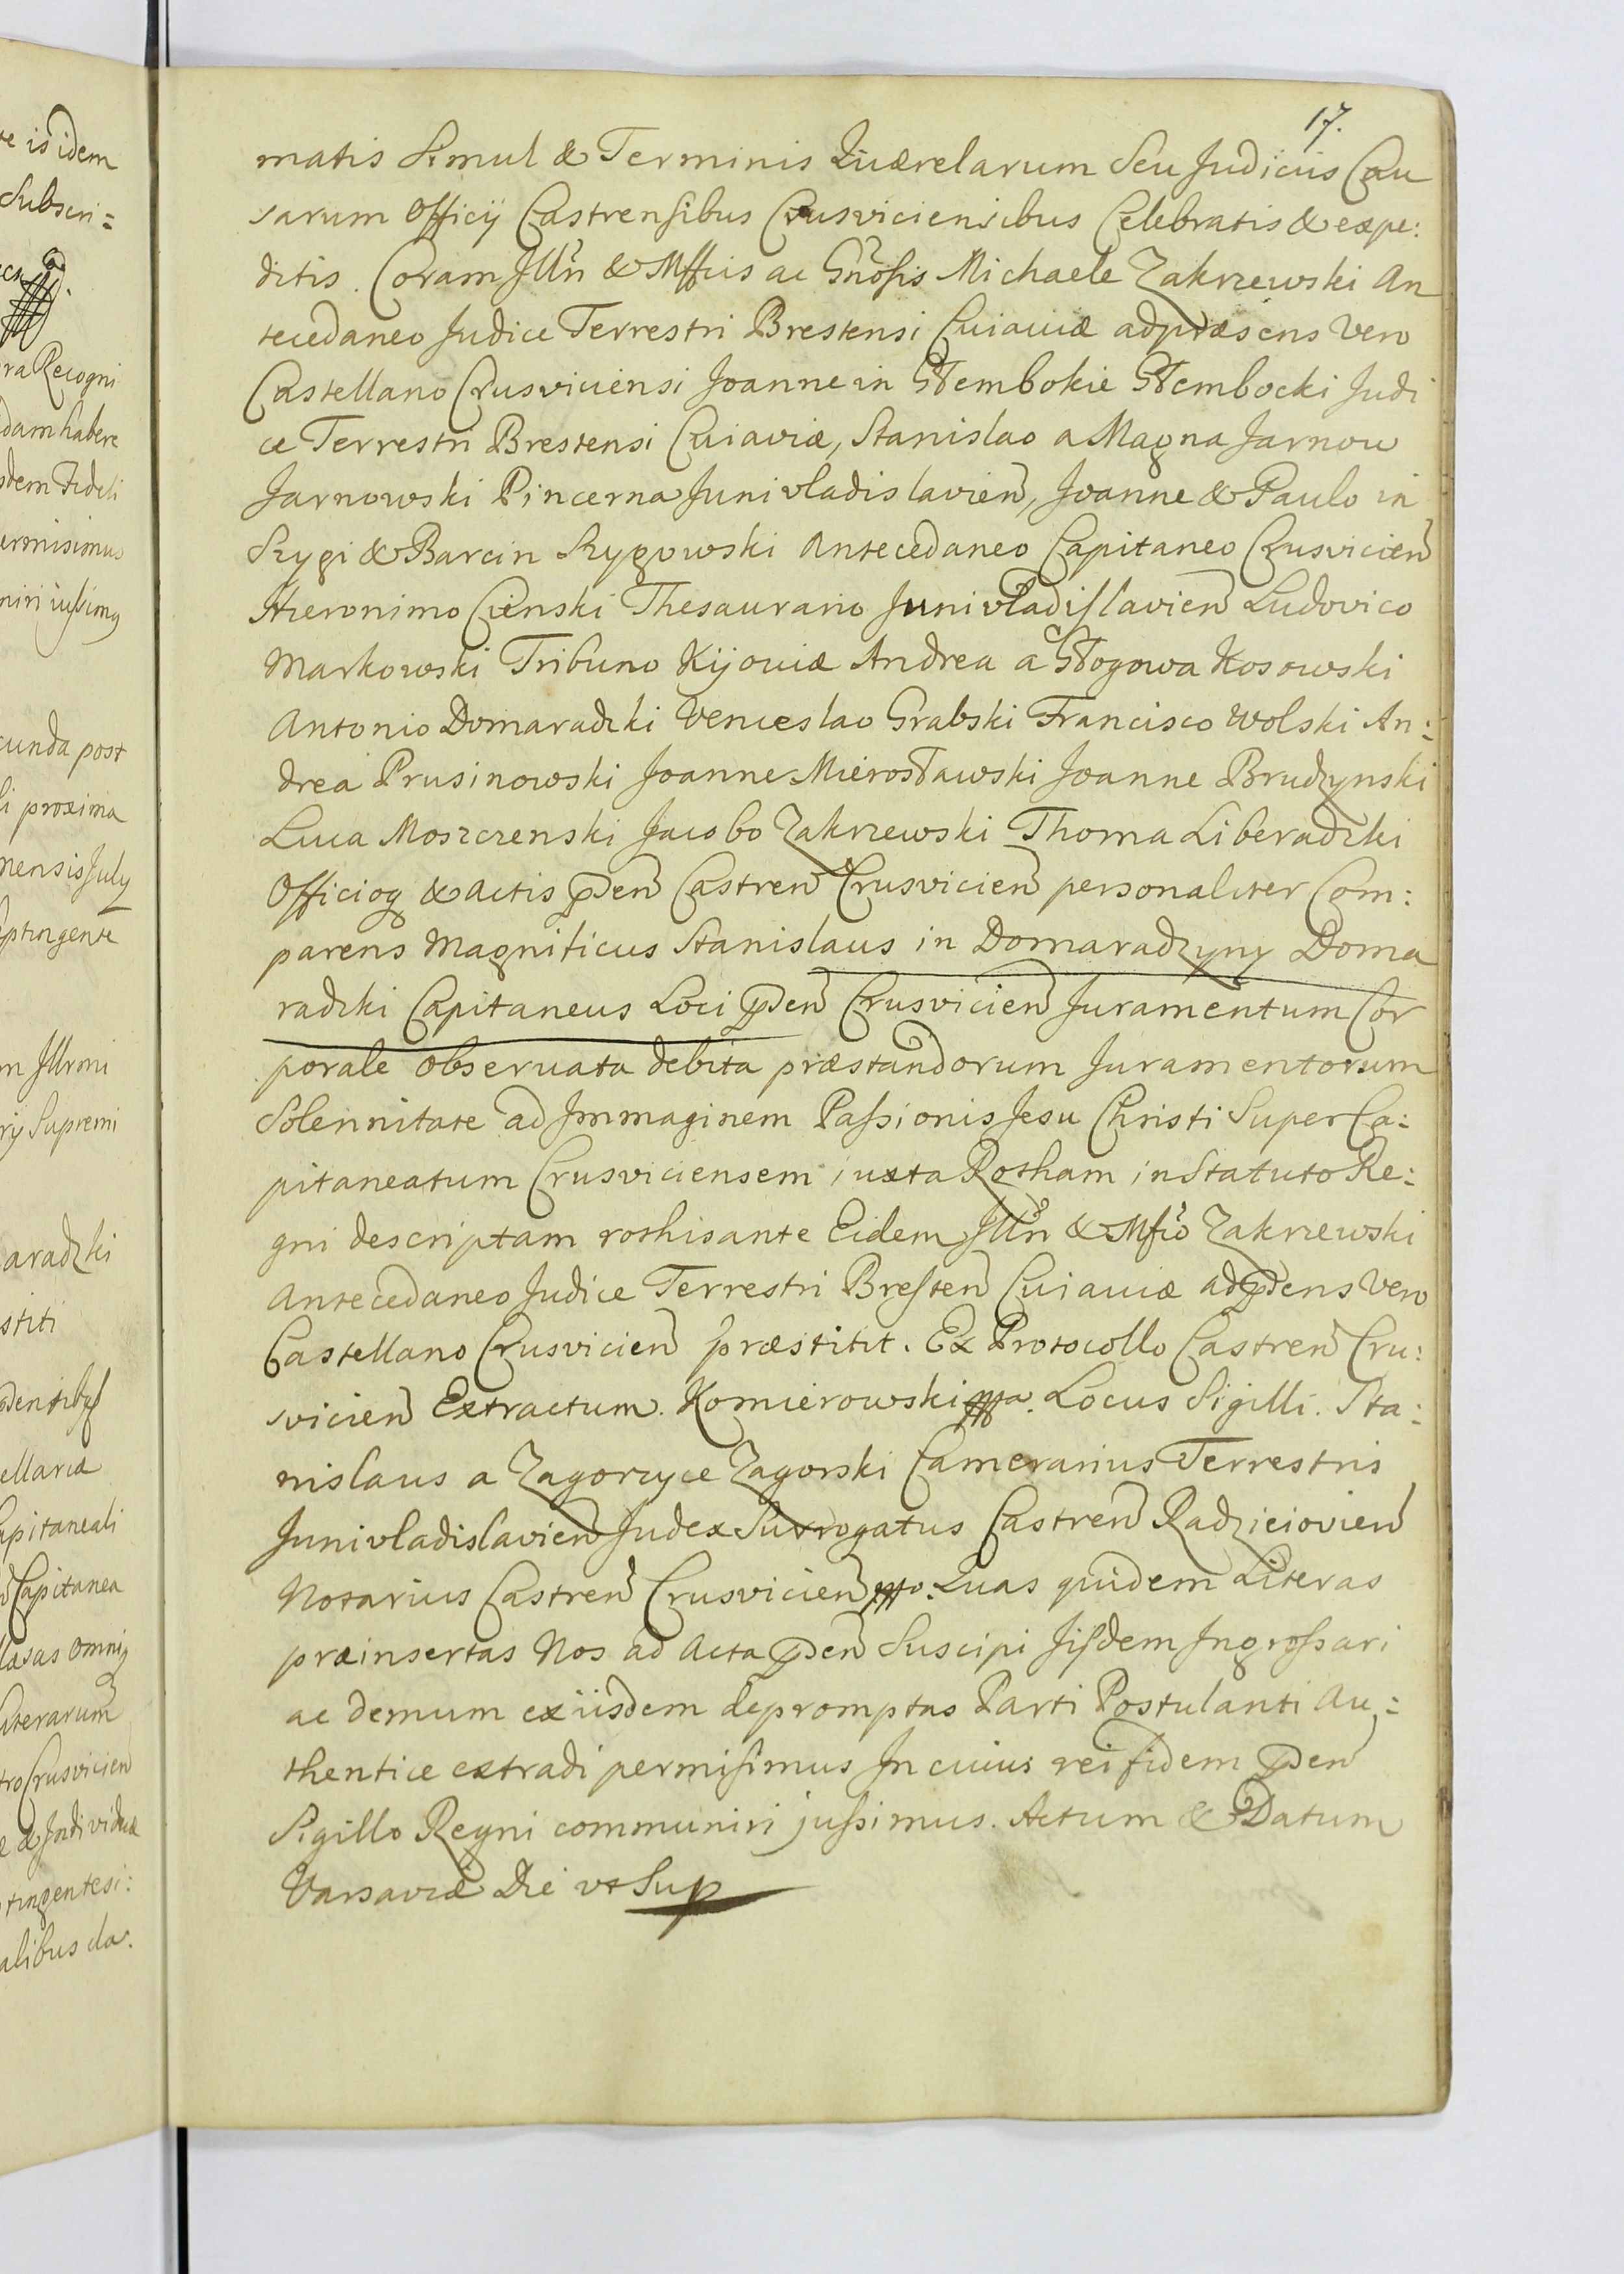 17.
matis Simul & Terminis Quærelarum Seu Judiciis Cau
sarum Officij Castrensibus Crusviciensibus Celebratis & expe:
ditis. Coram Illrn & Mffcis ac Gnosis Michaele Zakrzewski An
tecedaneo Judice Terrestri Brestensi Cuiaviæ ad præsens Vero
Castellano Crusviciensi Joanne in Głembokie Głembocki Judi
ce Terrestri Brestensi Cuiaviæ, Stanislao a Magna Jarnow
Jarnowski Pincerna Junivladislavien, Joanne & Paulo in
Szygi & Barcin Szygowski Antecedaneo Capitaneo Crusvicien
Hieronimo Cienski Thesaurario Junivladislavien Ludovico
Markowski Tribuno Kijoviæ Andrea a Głogowa Kosowski
Antonio Domaradzki Venceslao Grabski Francisco Wolski An:
drea Prusinowski Joanne Mierosławski Joanne Brudzynski
Luca Moszczenski Jacobo Zakrzewski Thoma Liberadzki
Officioq & Actis pden Castren Crusvicien personaliter Com:
parens Magnificus Stanislaus in Domaradzyny Doma
radzki Capitaneus Loci pden Crusvicien Juramentum Cor
porale observata debita præstandorum Juramentorum
Solennitate ad Immaginem Passionis Jesu Christi Super Ca:
pitaneatum Crusviciensem iuxta Rotham in Statuto Re:
gni descriptam rothisante Eidem Illrn & Mfco Zakrzewski
Antecedaneo Judice Terrestri Bresten Cuiaviæ ad pdens Vero
Castellano Crusvicien præstitit. Ex Protocollo Castren Cru:
svicien Extractum. Komierowski mpa. Locus Sigilli. Sta:
nislaus a Zagorzyce Zagorski Camerarius Terrestris
Junivladislavien Judex Surrogatus Castren Radzieiovien
Notarius Castren Crusvicien mpp. Quas quidem Literas
præinsertas Nos ad Acta pden Suscipi Iisdem Ingrossari
ac demum ex iisdem depromptas Parti Postulanti Au:
thentice extradi permisimus In cuius rei fidem pden
Sigillo Regni communiri jussimus. Actum & Datum
Varsaviæ Die vt Sup